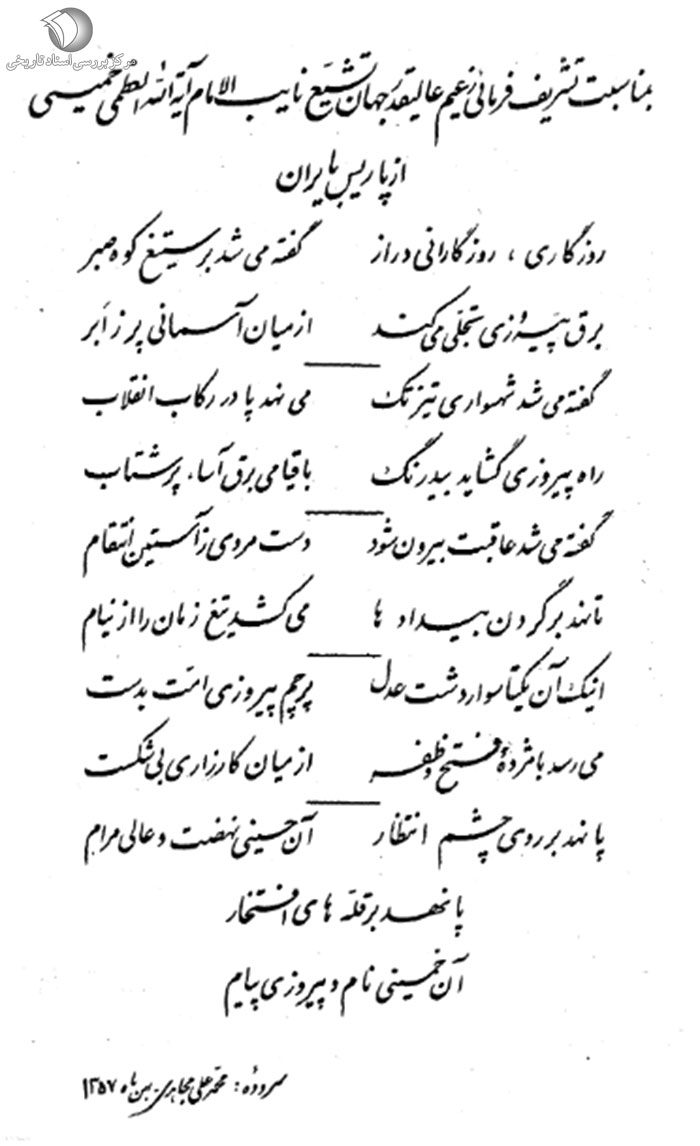 مرکز بررسی اسناد تاریخی
بمناسبت تشریف فرمائی زعیم عالیقدر جهان تشیع نایب الامام آیة الله العظمی خمینی
از پاریس بایران
روزگاری ، روزگارانی دراز گفته می شد بر ستیغ کوه صبر
برق پیروزی تجلی می کند از میان آسمانی پر ز ابر
گفته می شد شهسواری تیز تک می نهد پا در رکاب انقلاب
راه پیروزی گشاید بیدرنگ با قیامی برق آسا، پرشتاب
گفته می شد عاقبت بیرون شود دست مردی ز آستین انتقام
تا نهد بر گردن بیدادها می کشد تیغ زمان را از نیام
اینک آن یکتا سوار دشت عدل پرچم پیروزی امت بدست
می رسد با مژدهٔ فتح و ظفر از میان کارزاری بی شکست
پا نهد بر روی چشم انتظار آن حسینی نهضت و عالی مرام
پا نهد بر قله های افتخار
آن خمینی نام و پیروزی پیام
سروده: محمد علی مجاهدی - بهمن ماه ۱۳۵۷